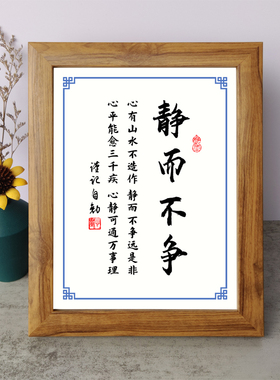 静而不争
心有山水不造作 静而不争远是非
心平能愈三千疾 心静可通万事理
谨记自勉